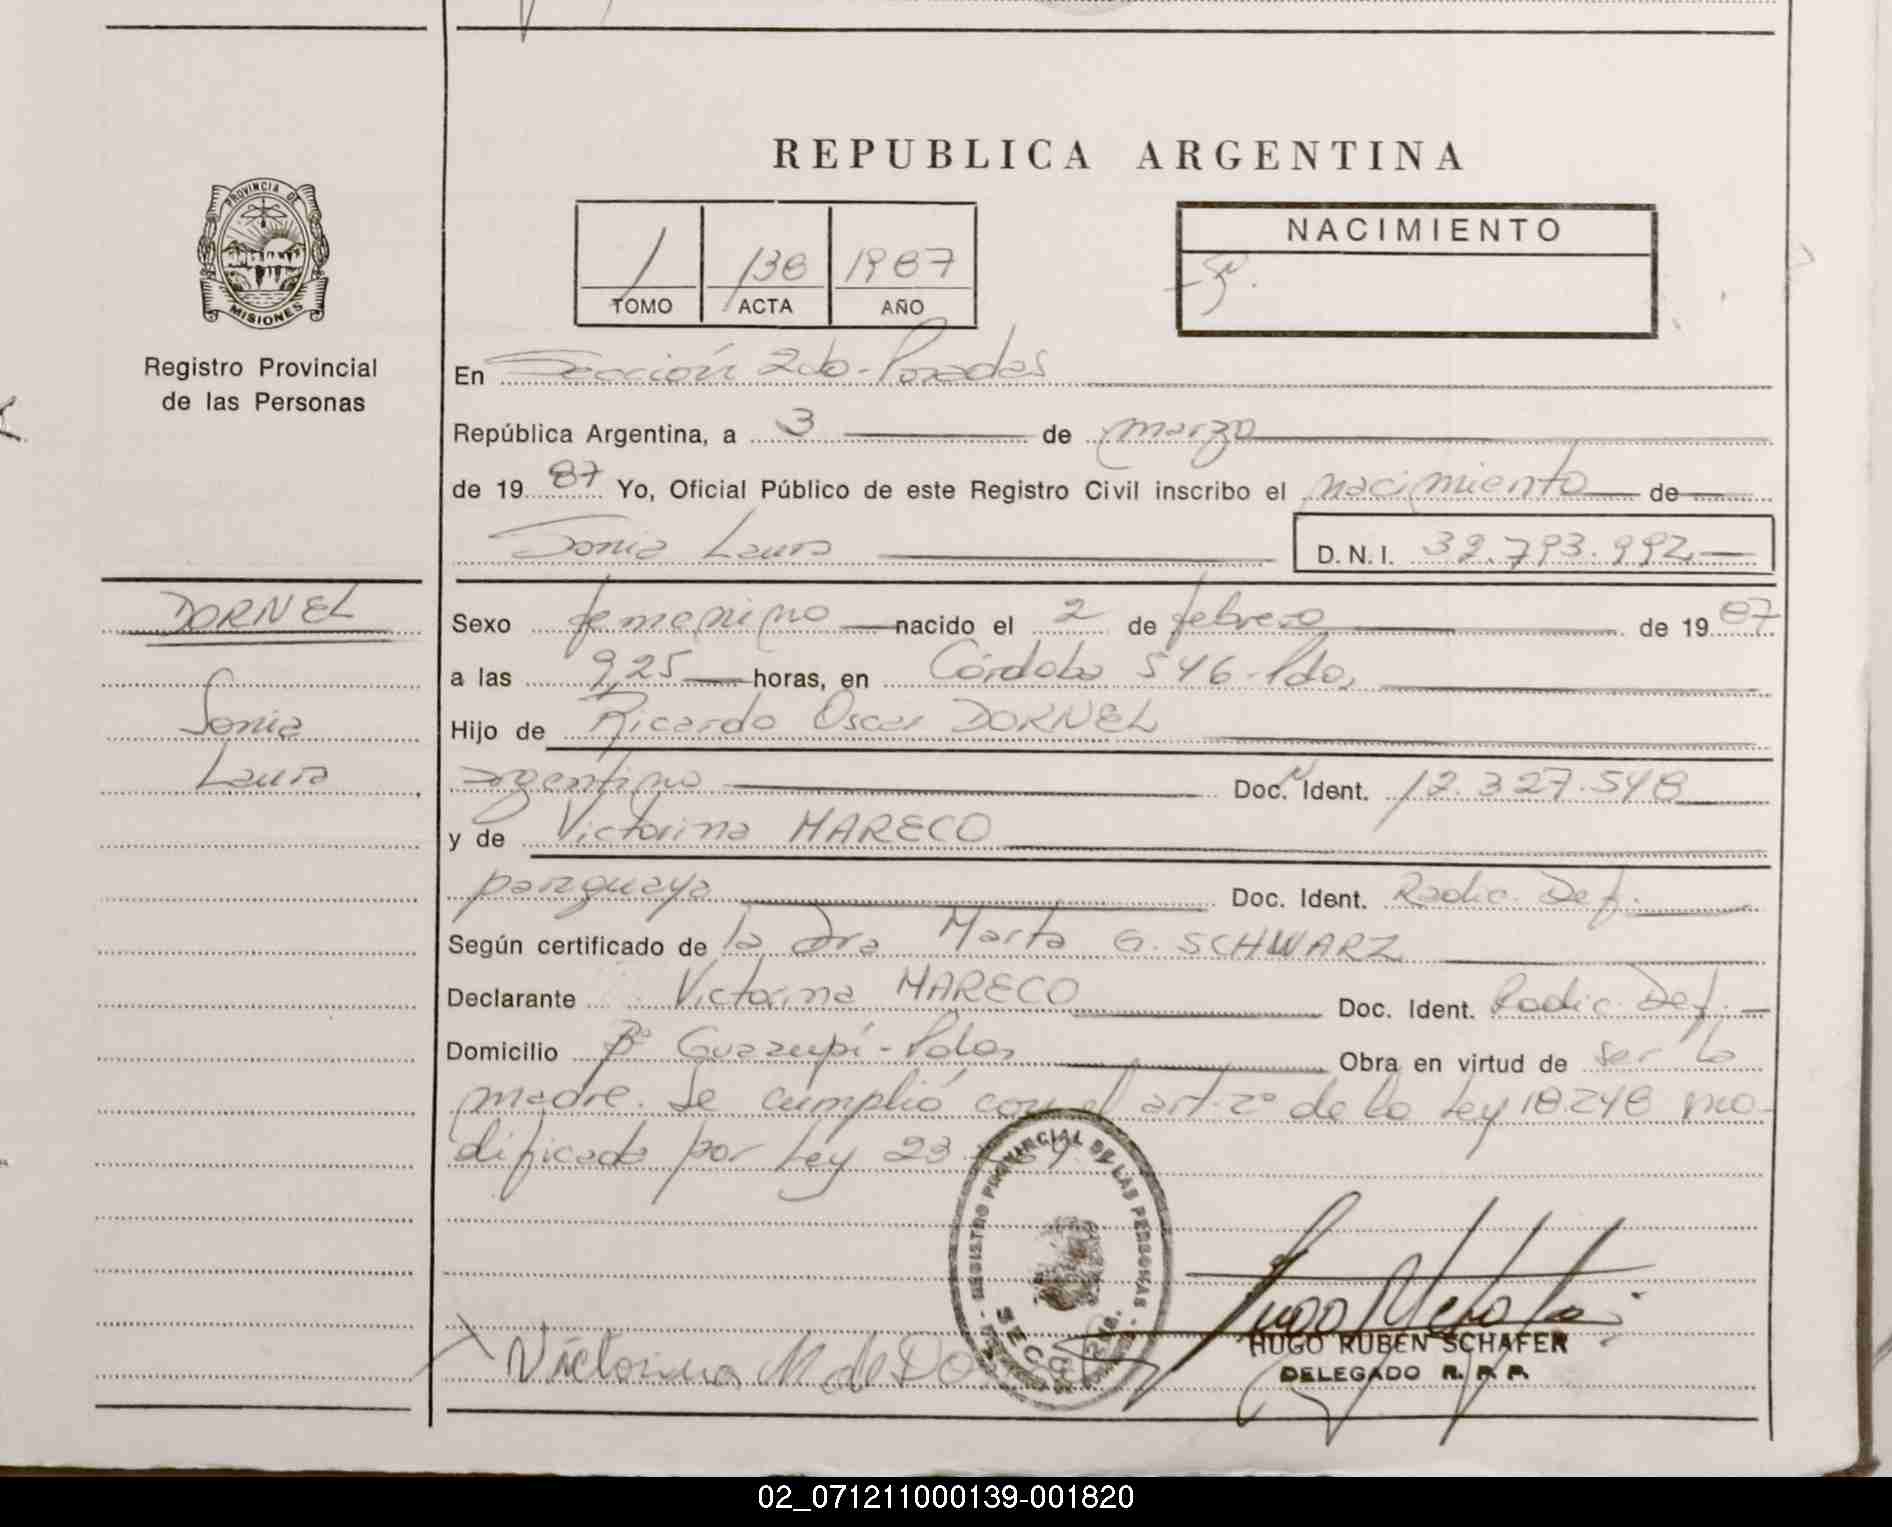 REPUBLICA ARGENTINA
PROVINCIA DE
MISIONES
Registro Provincial
de las Personas
1 138 1987
TOMO ACTA AÑO
NACIMIENTO
En Sección 2da - Posadas
República Argentina, a 3 de marzo
de 1987 Yo, Oficial Público de este Registro Civil inscribo el nacimiento de
Sonia Laura D.N.I. 32.793.992
DORNEL
Sonia
Laura
Sexo femenino nacido el 2 de febrero de 1987
a las 9,25 horas, en Córdoba 546 - Pdas
Hijo de Ricardo Oscar DORNEL
argentino Doc. Ident. 12.327.548
y de Victorina MARECO
paraguaya Doc. Ident. Radic. Def.
Según certificado de la Dra Marta G. SCHWARZ
Declarante Victorina MARECO Doc. Ident. Radic. Def.
Domicilio Bº Guazupí - Pdas Obra en virtud de ser la
madre. Se cumplió con el art. 2º de la Ley 18.248 mo-
dificada por Ley 23
REGISTRO PROVINCIAL DE LAS PERSONAS
Victorina M. de DO
HUGO RUBEN SCHAFER
DELEGADO R. P. P.
02_071211000139-001820